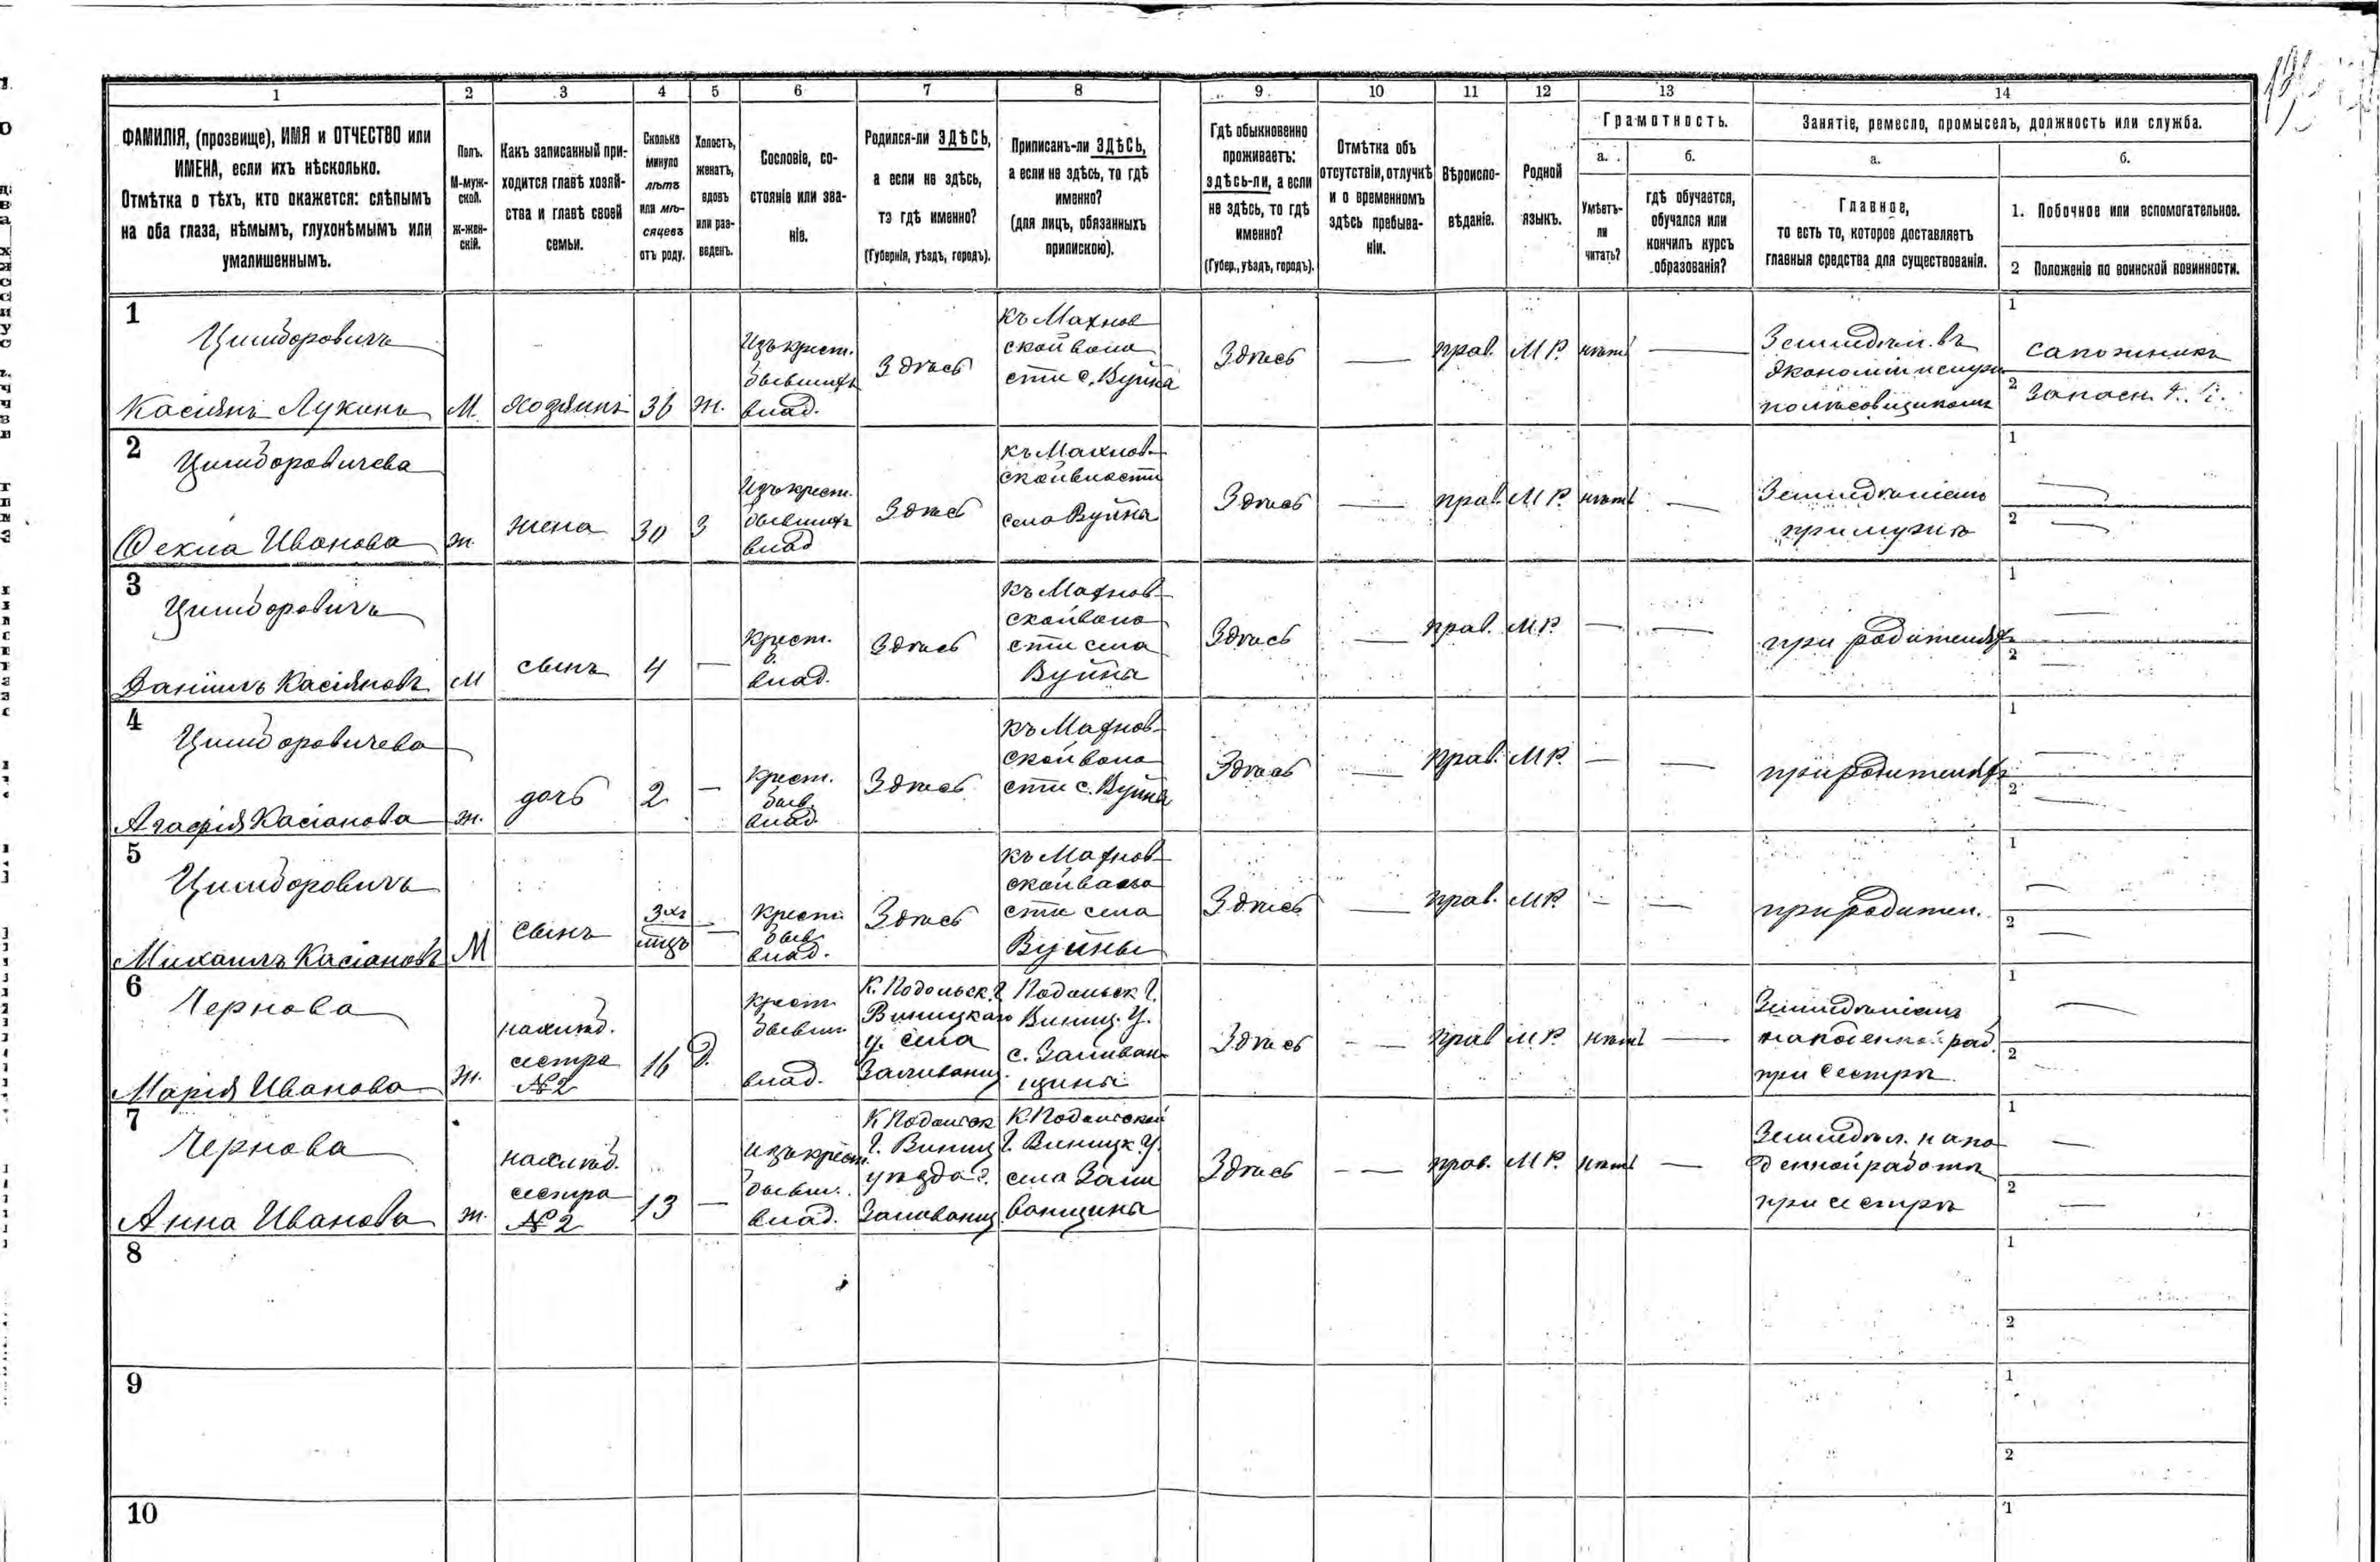 1 2 3 4 5 6 7 8 9 10 11 12 13 14
ФАМИЛІЯ, (прозвище), ИМЯ и ОТЧЕСТВО или
ИМЕНА, если ихъ нѣсколько.
Отмѣтка о тѣхъ, кто окажется: слѣпымъ
на оба глаза, нѣмымъ, глухонѣмымъ или
умалишеннымъ.
Полъ.
М-муж-
ской.
ж-жен-
скій.
Какъ записанный при-
ходится главѣ хозяй-
ства и главѣ своей
семьи.
Сколько
минуло
лѣтъ
или мѣ-
сяцевъ
отъ роду.
Холостъ,
женатъ,
вдовъ
или раз-
веденъ.
Сословіе, со-
стояніе или зва-
ніе.
Родился-ли ЗДѢСЬ,
а если не здѣсь,
то гдѣ именно?
(Губернія, уѣздъ, городъ).
Приписанъ-ли ЗДѢСЬ,
а если не здѣсь, то гдѣ
именно?
(для лицъ, обязанныхъ
припискою).
Гдѣ обыкновенно
проживаетъ:
здѣсь-ли, а если
не здѣсь, то гдѣ
именно?
(Губер., уѣздъ, городъ).
Отмѣтка объ
отсутствіи, отлучкѣ
и о временномъ
здѣсь пребыва-
ніи.
Вѣроиспо-
вѣданіе.
Родной
языкъ.
Грамотность.
а.
Умѣетъ-
ли
читать?
б.
гдѣ обучается,
обучался или
кончилъ курсъ
образованія?
Занятіе, ремесло, промыселъ, должность или служба.
а.
Главное,
то есть то, которое доставляетъ
главныя средства для существованія.
б.
1. Побочное или вспомогательное.
2 Положеніе по воинской повинности.
1
Цимдоровичъ
Касіянъ Лукинъ
М
хозяинъ
36
ж.
Изъ крест.
бывшихъ
влад.
Здѣсь
къ Махнов
ской воло
сти с. Вуйна
Здѣсь
—
прав.
М Р.
нѣтъ
—
Земледѣл. въ
экономіи
полѣсовщикомъ
1
сапожникъ
2
Запасн.
2
Цимдоровичева
Фекла Иванова
ж.
жена
30
З
Изъ крест.
бывшихъ
влад
Здѣсь
къ Махнов-
ской власти
села Вуйна
Здѣсь
—
прав.
М Р.
нѣтъ
—
Земледѣліемъ
при мужѣ
1
—
2
—
3
Цимдоровичъ
Даніилъ Касіяновъ
М
сынъ
4
—
Крест.
б.
влад.
Здѣсь
къ Махнов-
ской воло
сти села
Вуйна
Здѣсь
—
прав.
М Р.
—
—
при родителяхъ
1
—
2
—
4
Цимдоровичева
Агафія Касіанова
ж.
дочь
2
—
Крест.
быв.
влад.
Здѣсь
къ Махнов-
ской воло
сти с. Вуйна
Здѣсь
—
прав.
М Р.
—
—
при родителяхъ
1
—
2
—
5
Цимдоровичъ
Михаилъ Касіановъ
М
сынъ
3хъ
мцъ
—
крест.
быв.
влад.
Здѣсь
къ Махнов-
ской воло
сти села
Вуйны
Здѣсь
—
прав.
М Р.
—
—
при родител.
1
—
2
—
6
Чернова
Марія Иванова
ж.
сестра
№ 2
16
д.
крест
бывш.
влад.
К. Подольск. г
Виницкаго
у. села
Заливанщ.
Подольск г.
Виниц. у.
с. Заливан-
щины
Здѣсь
— —
прав
М Р.
нѣтъ
—
Земледѣліемъ
на поденной раб.
при сестрѣ
1
—
2
—
7
Чернова
Анна Иванова
ж.
сестра
№ 2
13
—
изъ крест.
бывш.
влад.
К Подольск
г. Виниц
уѣзда с.
Заливанщ
К Подольской
г. Виницк у.
села Зали
ванщина
Здѣсь
— —
прав.
М Р.
нѣтъ
—
Земледѣл. и по
денной работы
при сестрѣ
1
—
2
—
8
1
2
9
1
2
10
1